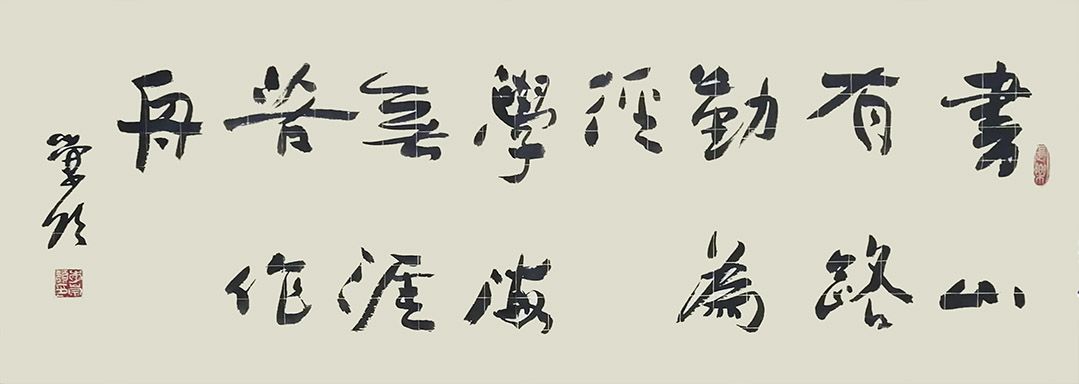 書山
有路
勤為
徑
學海
無涯
苦作
舟